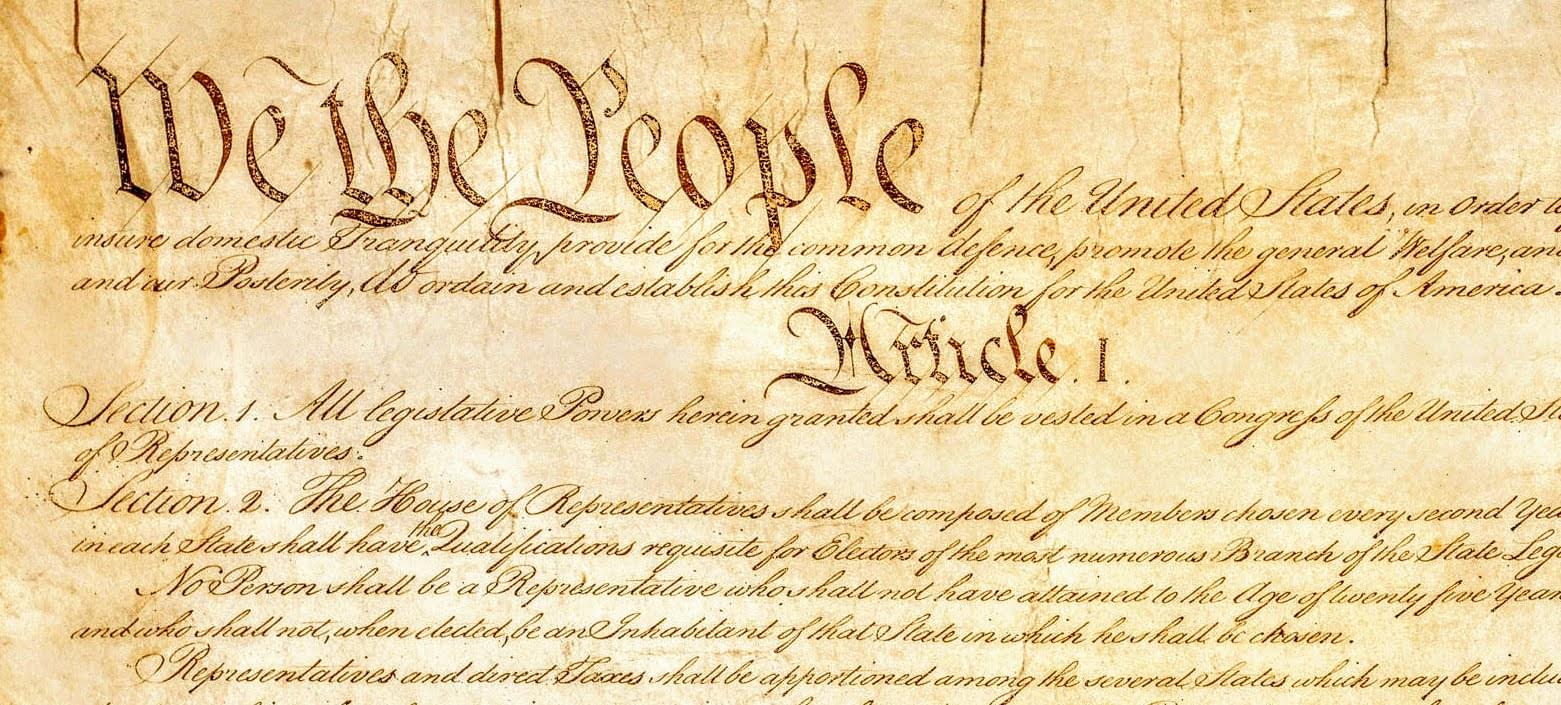 We the People of the United States, in Order
insure domestic Tranquility, provide for the common defence, promote the general Welfare, and
and our Posterity, do ordain and establish this Constitution for the United States of America
Article. I.
Section. 1. All legislative Powers herein granted shall be vested in a Congress of the United
of Representatives.
Section. 2. The House of Representatives shall be composed of Members chosen every second
in each State shall have the Qualifications requisite for Electors of the most numerous Branch of the State
No Person shall be a Representative who shall not have attained to the Age of twenty five Years
and who shall not, when elected, be an Inhabitant of that State in which he shall be chosen.
Representatives and direct Taxes shall be apportioned among the several States which may be